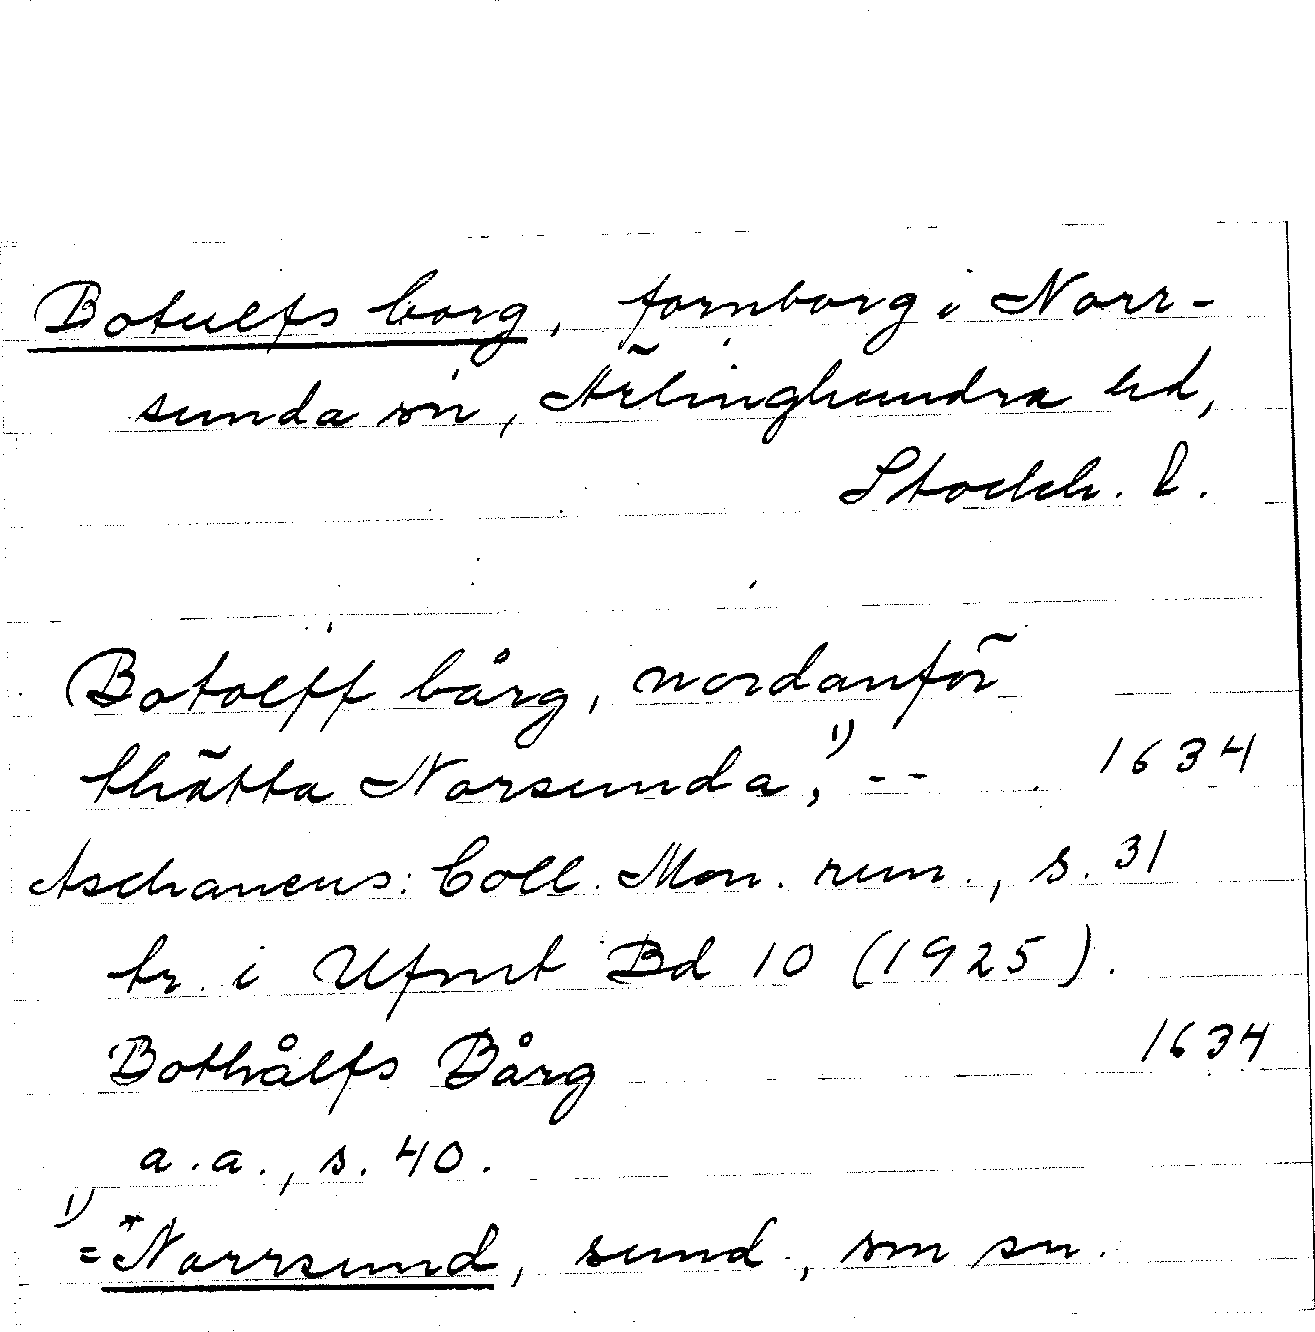 Botulfs borg, fornborg i Norr-
sunda sn, Ärlinghundra hd,
Stockh. l.
Botolff bårg, nordanför
thätta Norsunda,¹⁾ -- 1634
Aschaneus: Coll. Mon. run., s. 31
tr. i Ufmt Bd 10 (1925).
Bothålfs Bårg 1634
a.a., s. 40.
¹⁾ = *Norrsund, sund, sm sn.